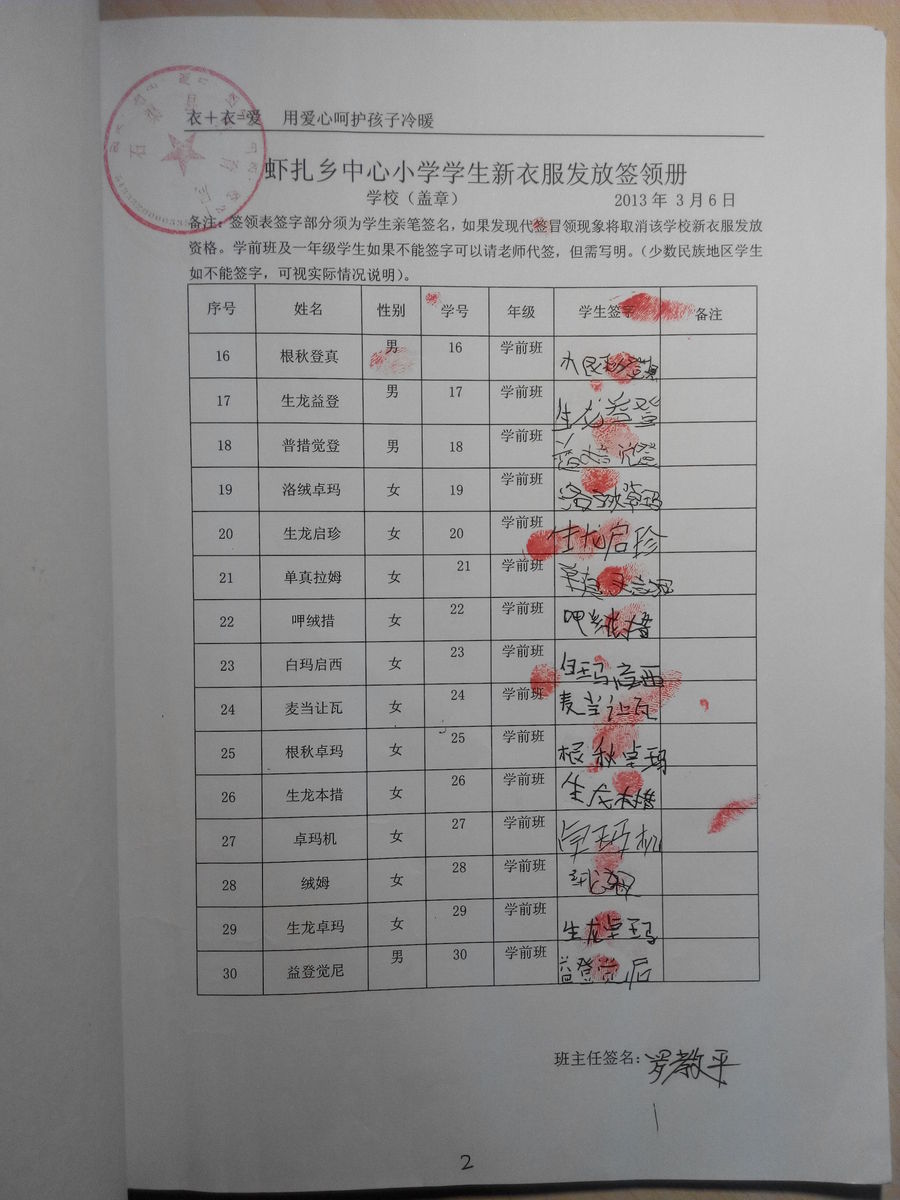 衣+衣=爱 用爱心呵护孩子冷暖
虾扎乡中心小学学生新衣服发放签领册
学校（盖章） 2013 年 3 月 6 日
备注：签领表签字部分须为学生亲笔签名，如果发现代签冒领现象将取消该学校新衣服发放
资格。学前班及一年级学生如果不能签字可以请老师代签，但需写明。（少数民族地区学生
如不能签字，可视实际情况说明）。
序号 姓名 性别 学号 年级 学生签字 备注
16 根秋登真 男 16 学前班
17 生龙益登 男 17 学前班 生龙益登
18 普措觉登 男 18 学前班 普措觉登
19 洛绒卓玛 女 19 学前班 洛绒卓玛
20 生龙启珍 女 20 学前班 生龙启珍
21 单真拉姆 女 21 学前班
22 呷绒措 女 22 学前班 呷绒措
23 白玛启西 女 23 学前班 白玛启西
24 麦当让瓦 女 24 学前班 麦当让瓦
25 根秋卓玛 女 25 学前班 根秋卓玛
26 生龙本措 女 26 学前班 生龙本措
27 卓玛机 女 27 学前班 卓玛机
28 绒姆 女 28 学前班
29 生龙卓玛 女 29 学前班 生龙卓玛
30 益登觉尼 男 30 学前班 益登觉尼
班主任签名：罗教平
2